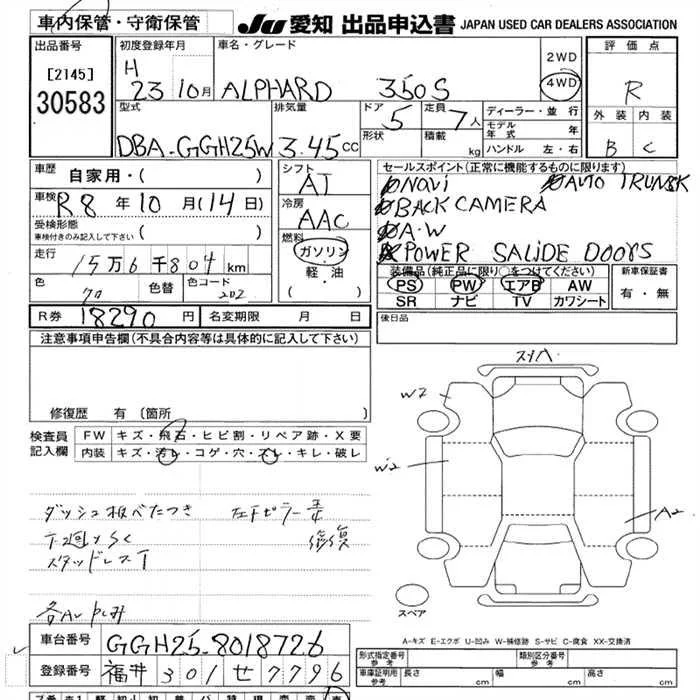 車内保管・守衛保管 JU 愛知 出品申込書 JAPAN USED CAR DEALERS ASSOCIATION
出品番号 初度登録年月 車名・グレード 2WD 評価点
[2145] H 4WD
30583 23 10月 ALPHARD 350S R
型式 排気量 ドア 定員 ディーラー・並行 外装 内装
5 7人 モデル年式 年
形状 積載 kg ハンドル 左・右
DBA-GGH25W 3.45cc B C
車歴 自家用・( ) シフト AT セールスポイント(正常に機能するものに限ります)
NAVI AUTO TRUNSK
車検 R8年10月(14日) 冷房 AAC BACK CAMERA
受検形態 A・W
車検付きのみ記入して下さい ( ) 燃料 ガソリン POWER SALIDE DOORS
走行 15万6千804km 軽・油 装備品(純正品に限り○をつけてください) 新車保証書
色 クロ 色替 色コード 202 ( ) PS PW エアB AW 有・無
SR ナビ TV カワシート
R券 18290円 名変期限 月 日 後日品
注意事項申告欄(不具合内容等は具体的に記入して下さい)
修復歴 有(箇所
検査員 FW キズ・飛石・ヒビ割・リペア跡・X要
記入欄 内装 キズ・汚レ・コゲ・穴・スレ・キレ・破レ
W2
W2
A2
ダッシュ板べたつき 左Fピラー
修復
スタッドレスT
スペア
A-キズ E-エクボ U-凹み W-補修跡 S-サビ C-腐食 XX-交換済
車台番号 GGH25-8018726 形式指定番号 参考 類別区分番号 参考
登録番号 福井 301 せ 7796 車庫証明用 参考 長さ cm 幅 cm 高さ cm